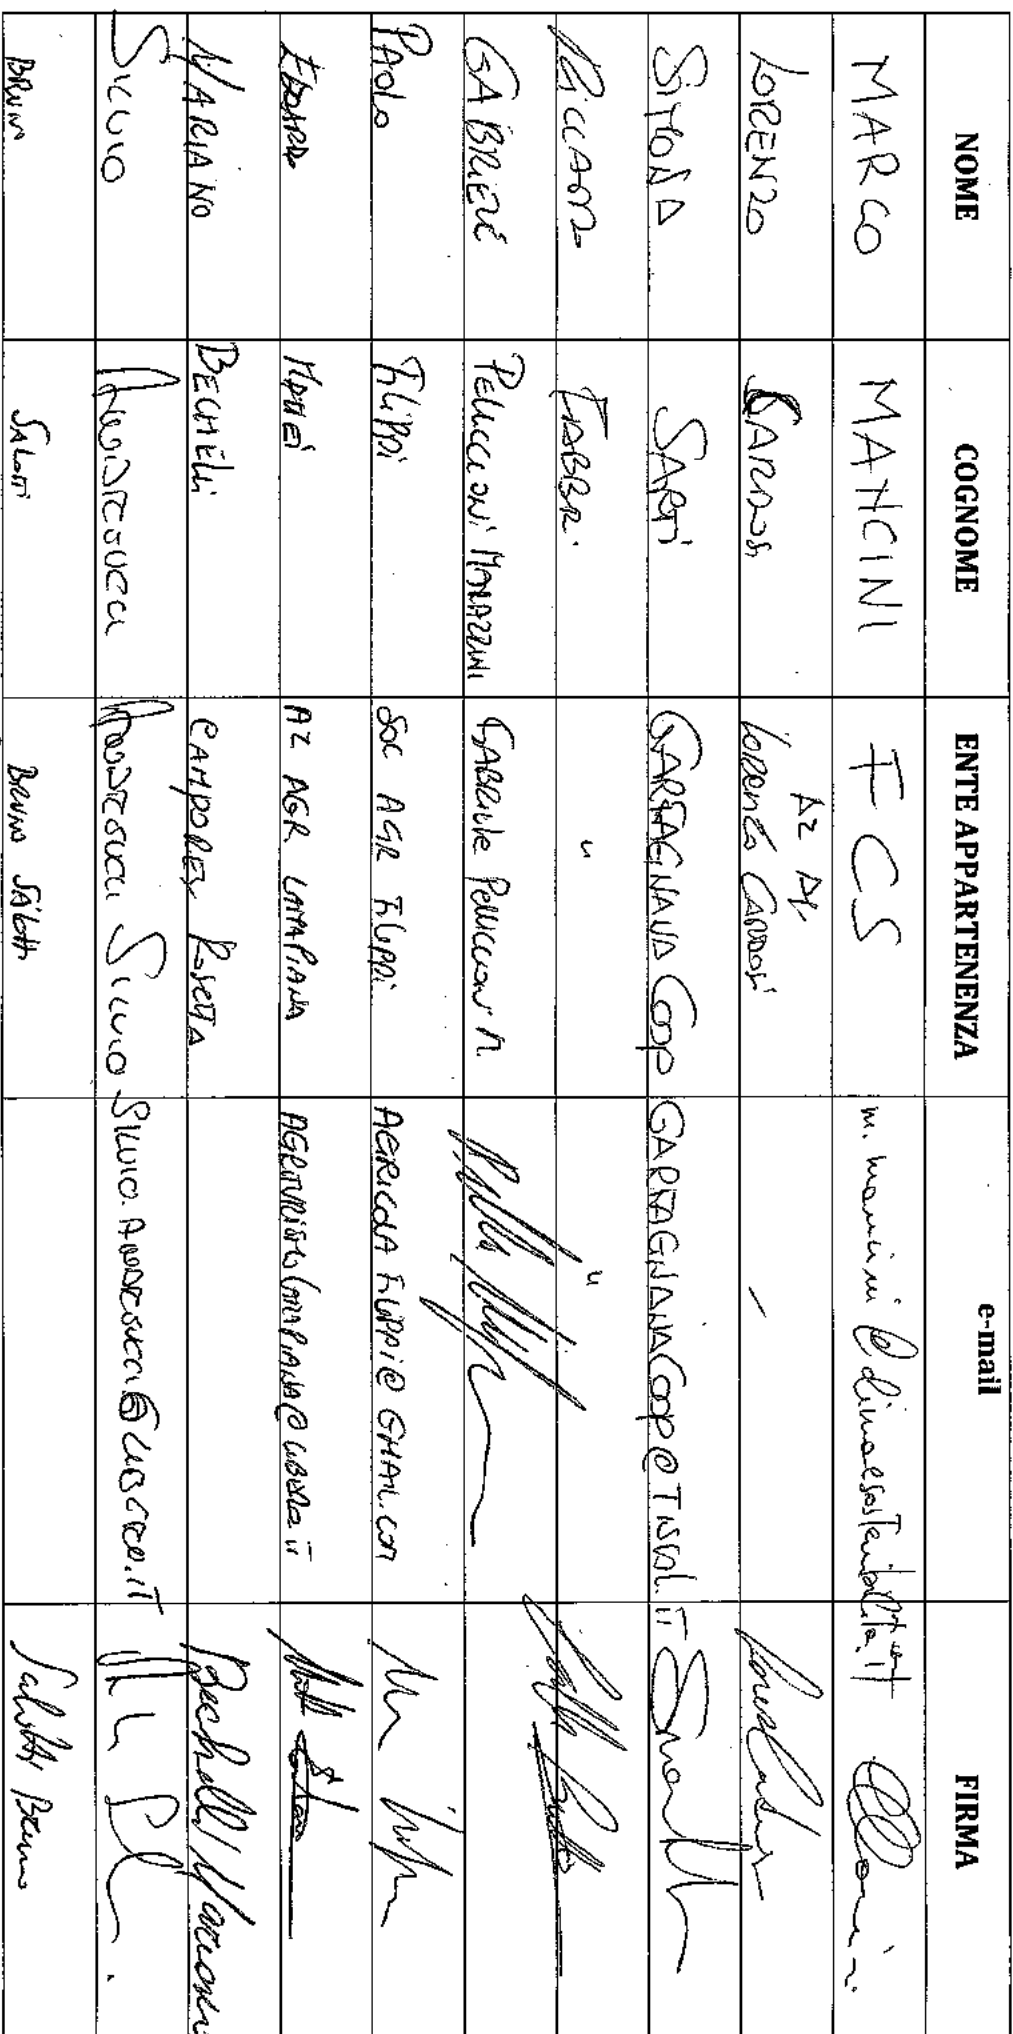 NOME COGNOME ENTE APPARTENENZA e-mail FIRMA
MARCO MANCINI FCS m.mancini@climaesostenibilita.it
LORENZO CARDOSI Az Ag. LORENZO CARDOSI -
SIMONA SARTI GARFAGNANA COOP GARFAGNANACOOP@TISCALI.IT
RICCARDO FABBRI " "
GABRIELE PELLICCIONI MARAZZINI GABRIELE PELLICCIONI M.
PAOLO FILIPPI SOC AGR FILIPPI AGRICOLA FILIPPI@GMAIL.COM
EDOARDO MATTEI AZ AGR LAMAPIANA AGRITURISMOLAMAPIANA@LIBERO.IT
MARIANO BECHELLI CAMPORE ROSETTA Bechelli Mariano
SILVIO ANDREUCCI ANDREUCCI SILVIO SILVIO.ANDREUCCI@LIBERO.IT
BRUNO SALOTTI BRUNO SALOTTI Salotti Bruno